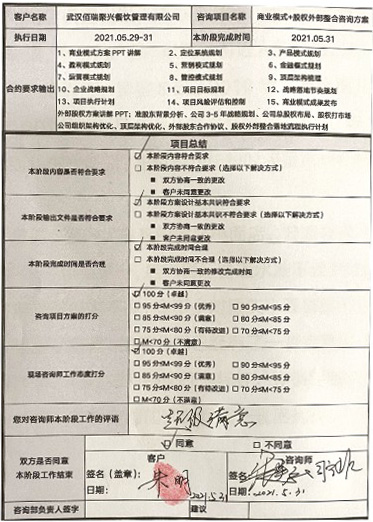 客户名称 武汉佰瑞聚兴餐饮管理有限公司 咨询项目名称 商业模式+股权外部整合咨询方案
执行日期 2021.05.29-31 本阶段完成时间 2021.05.31
合约要求输出
1、商业模式方案 PPT 讲解 2、定位系统规划 3、产品模式规划
4、盈利模式规划 5、营销模式规划 6、金融模式规划
7、运营模式规划 8、管控模式规划 9、顶层架构梳理
10、企业战略规划 11、项目目标规划 12、战略落地节奏规划
13、项目执行计划 14、项目风险评估和控制 15、商业模式成果发布
外部股权方案讲解 PPT：准股东背景分析、公司 3-5 年战略规划、公司总股权布局、股权打市场
公司组织架构优化、顶层架构优化、外部股东合作协议、股权外部整合落地流程执行计划
项目总结
本阶段内容是否符合要求
本阶段内容符合要求
□ 本阶段内容不符合要求（选择以下解决方式）
■ 双方协商一致的更改
■ 客户未同意更改
本阶段输出文件是否符合要求
本阶段方案设计基本共识符合要求
□ 本阶段方案设计基本共识不符合要求（选择以下解决方式）
■ 双方协商一致的更改
■ 客户未同意更改
本阶段完成时间是否合理
本阶段完成时间合理
□ 本阶段完成时间不合理（选择以下解决方式）
■ 双方协商一致的修改完成时间
■ 客户未同意更改
咨询项目方案的打分
100 分（卓越）
□ 95 分≤M<99 分（优秀） □ 90 分≤M<95 分
□ 85 分≤M<90 分（满意） □ 80 分≤M<85 分
□ 75 分≤M<80 分（有待改进） □ 70 分≤M<75 分
□ M<70 分（不满意）
驻场咨询师工作态度打分
100 分（卓越）
□ 95 分≤M<99 分（优秀） □ 90 分≤M<95 分
□ 85 分≤M<90 分（满意） □ 80 分≤M<85 分
□ 75 分≤M<80 分（有待改进） □ 70 分≤M<75 分
□ M<70 分（不满意）
您对咨询师本阶段工作的评语 超级满意
双方是否同意
本阶段工作结束
同意 □ 不同意
客户 咨询师
签名（盖章）： 签名：
日期： 2021.5.31 日期： 2021.5.31
咨询部负责人签字 建议